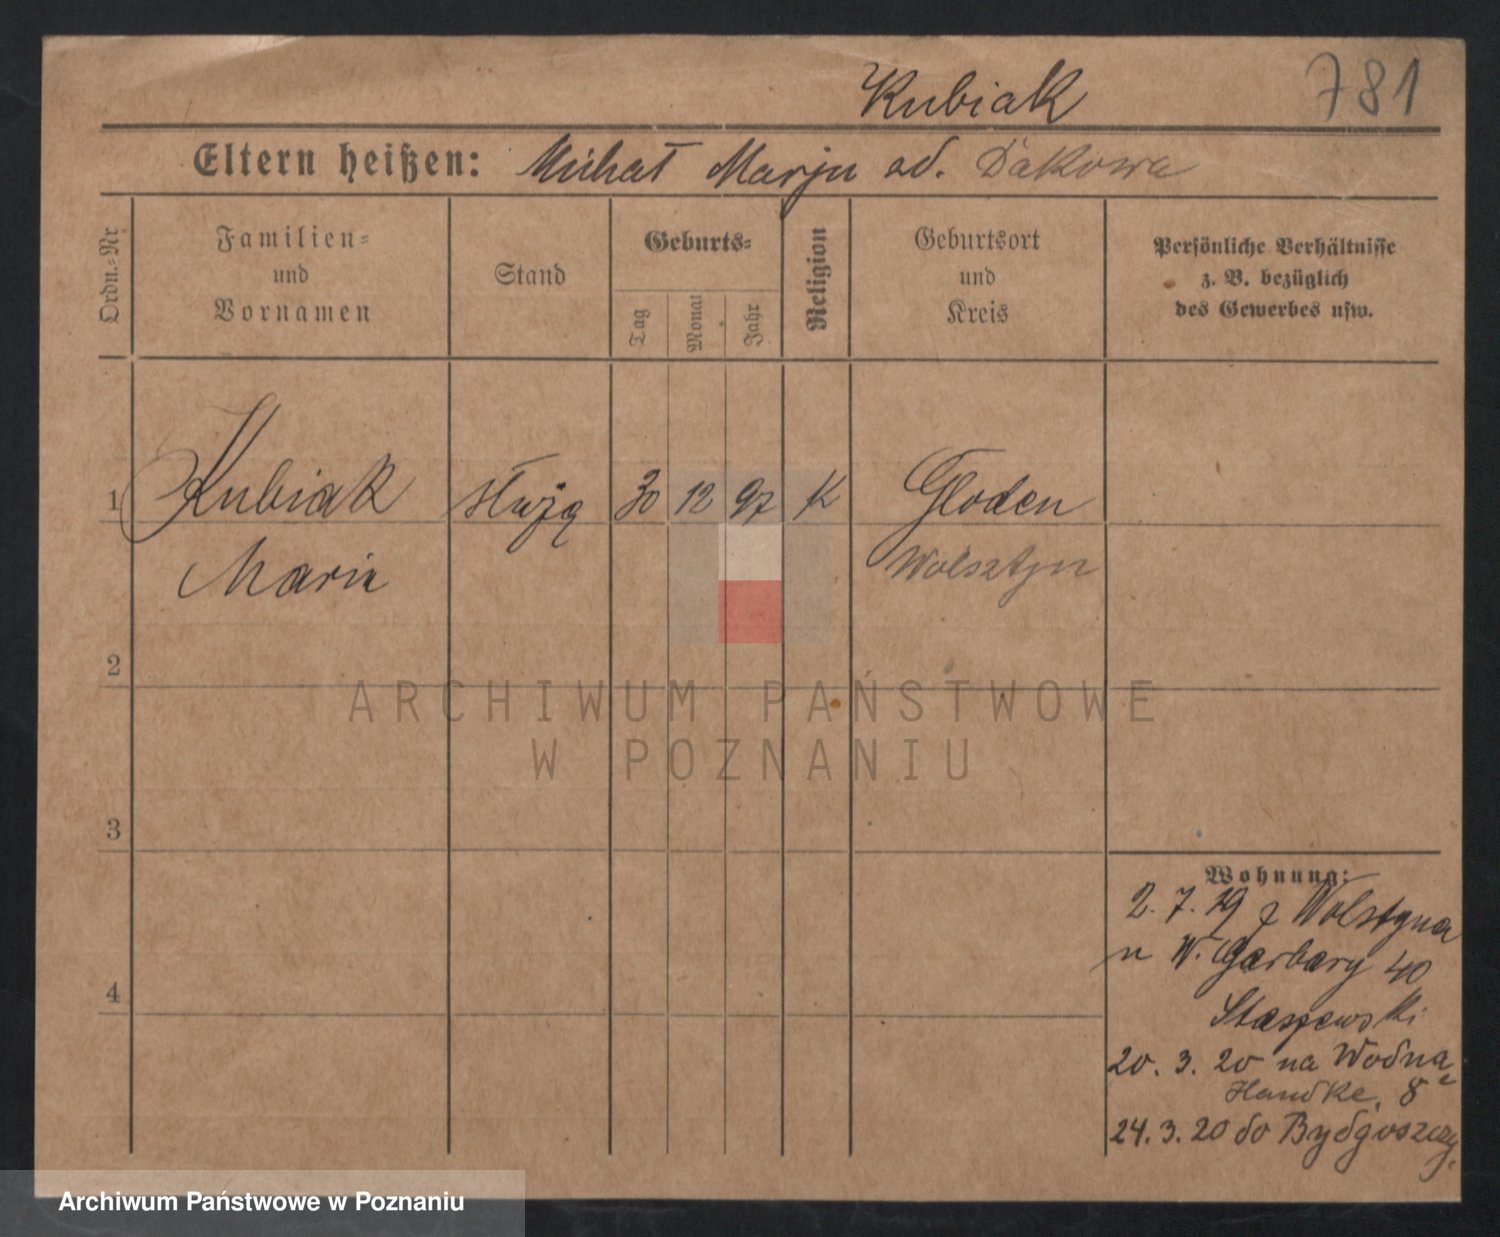 Kubiak 781
Eltern heißen: Michał Marju od. Dakowa
Ordn.-Nr
Familien-
und
Vornamen
Stand
Geburts-
Tag
Monat
Jahr
Religion
Geburtsort
und
Kreis
Persönliche Verhältnisse
z. B. bezüglich
des Gewerbes usw.
1 Kubiak służą 30 12 97 K Gloden
Maria Wolsztyn
2
ARCHIWUM PAŃSTWOWE
W POZNANIU
3
Wohnung:
2. 7. 19 z Wolstyna
n W. Garbary 40
Staszewski
4
20. 3. 20 na Wodna
Handke 8
24. 3. 20 do Bydgoszczy.
Archiwum Państwowe w Poznaniu